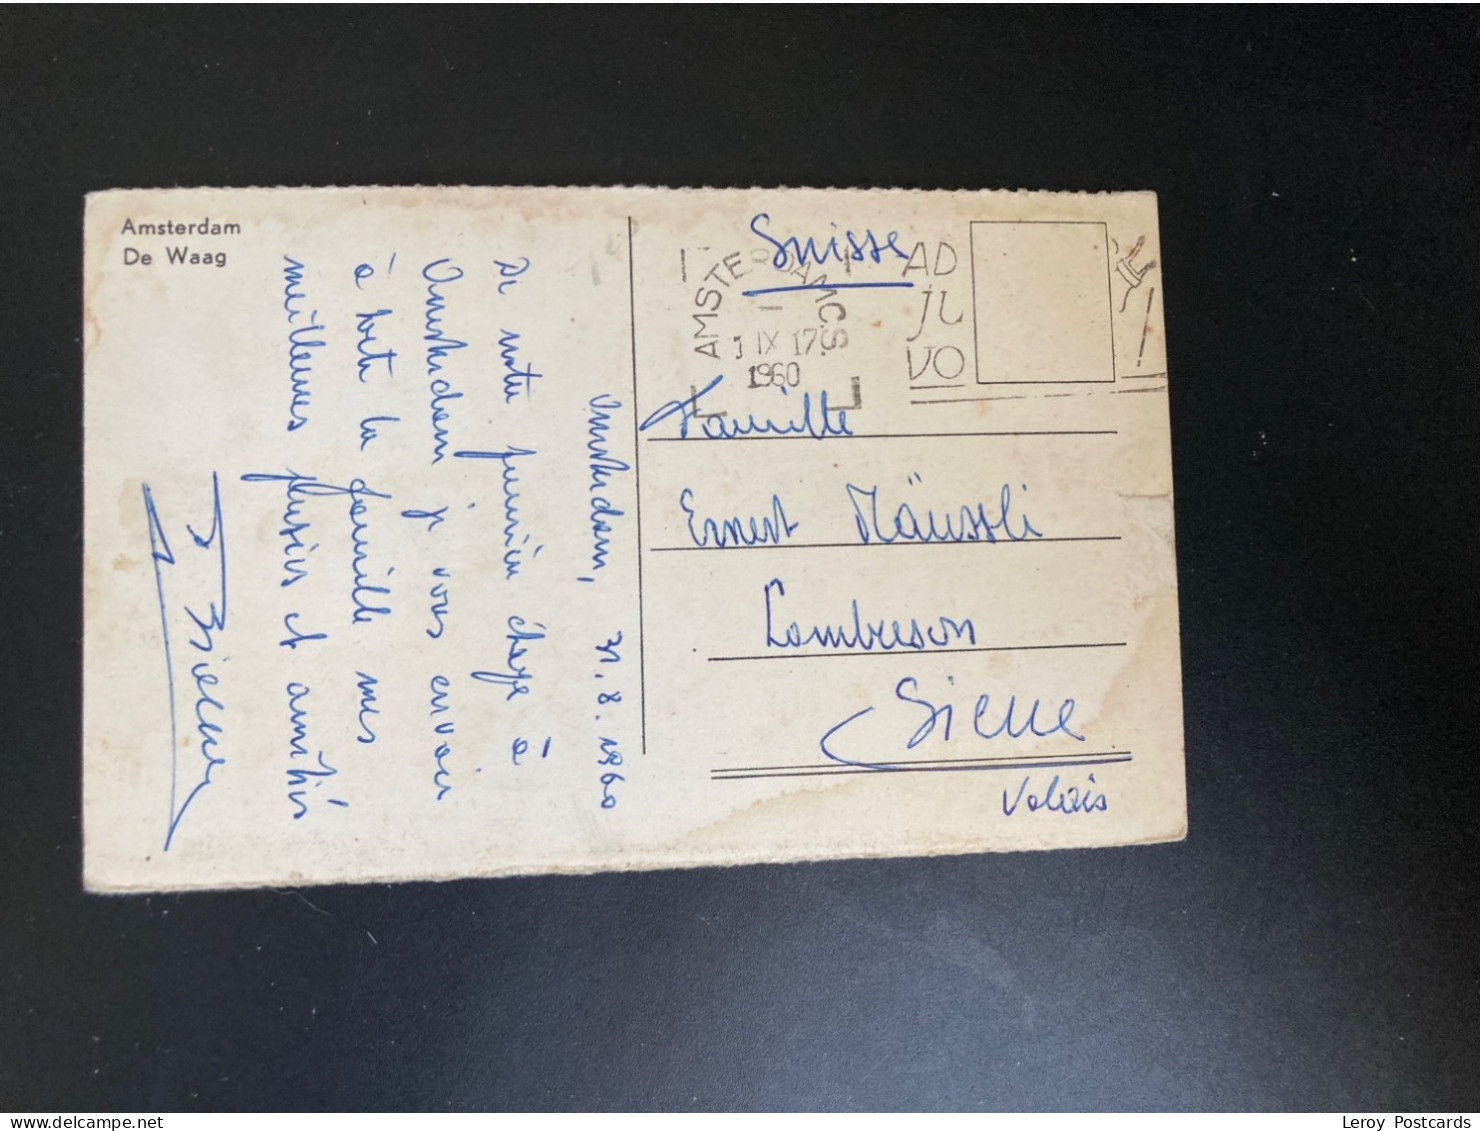 Amsterdam
De Waag
Amsterdam, 31.8.1960
De notre première étape à
Amsterdam je vous envoie
à toute la famille mes
meilleures pensées et amitiés
Suisse
AMSTERDAM C.S.
1 IX 17
1960
AD
JU
VO
Famille
Ernest Mäussli
Combreson
Sierre
Valais
Leroy Postcards